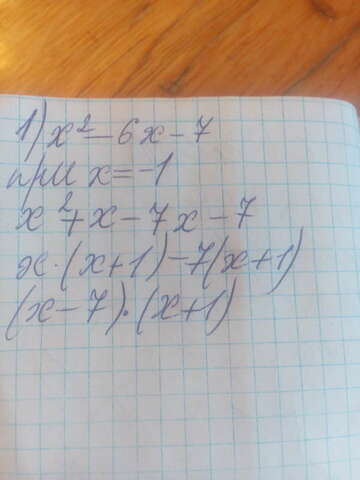 1) x² - 6x - 7
при x = -1
x² + x - 7x - 7
x · (x+1) - 7(x+1)
(x-7) · (x+1)